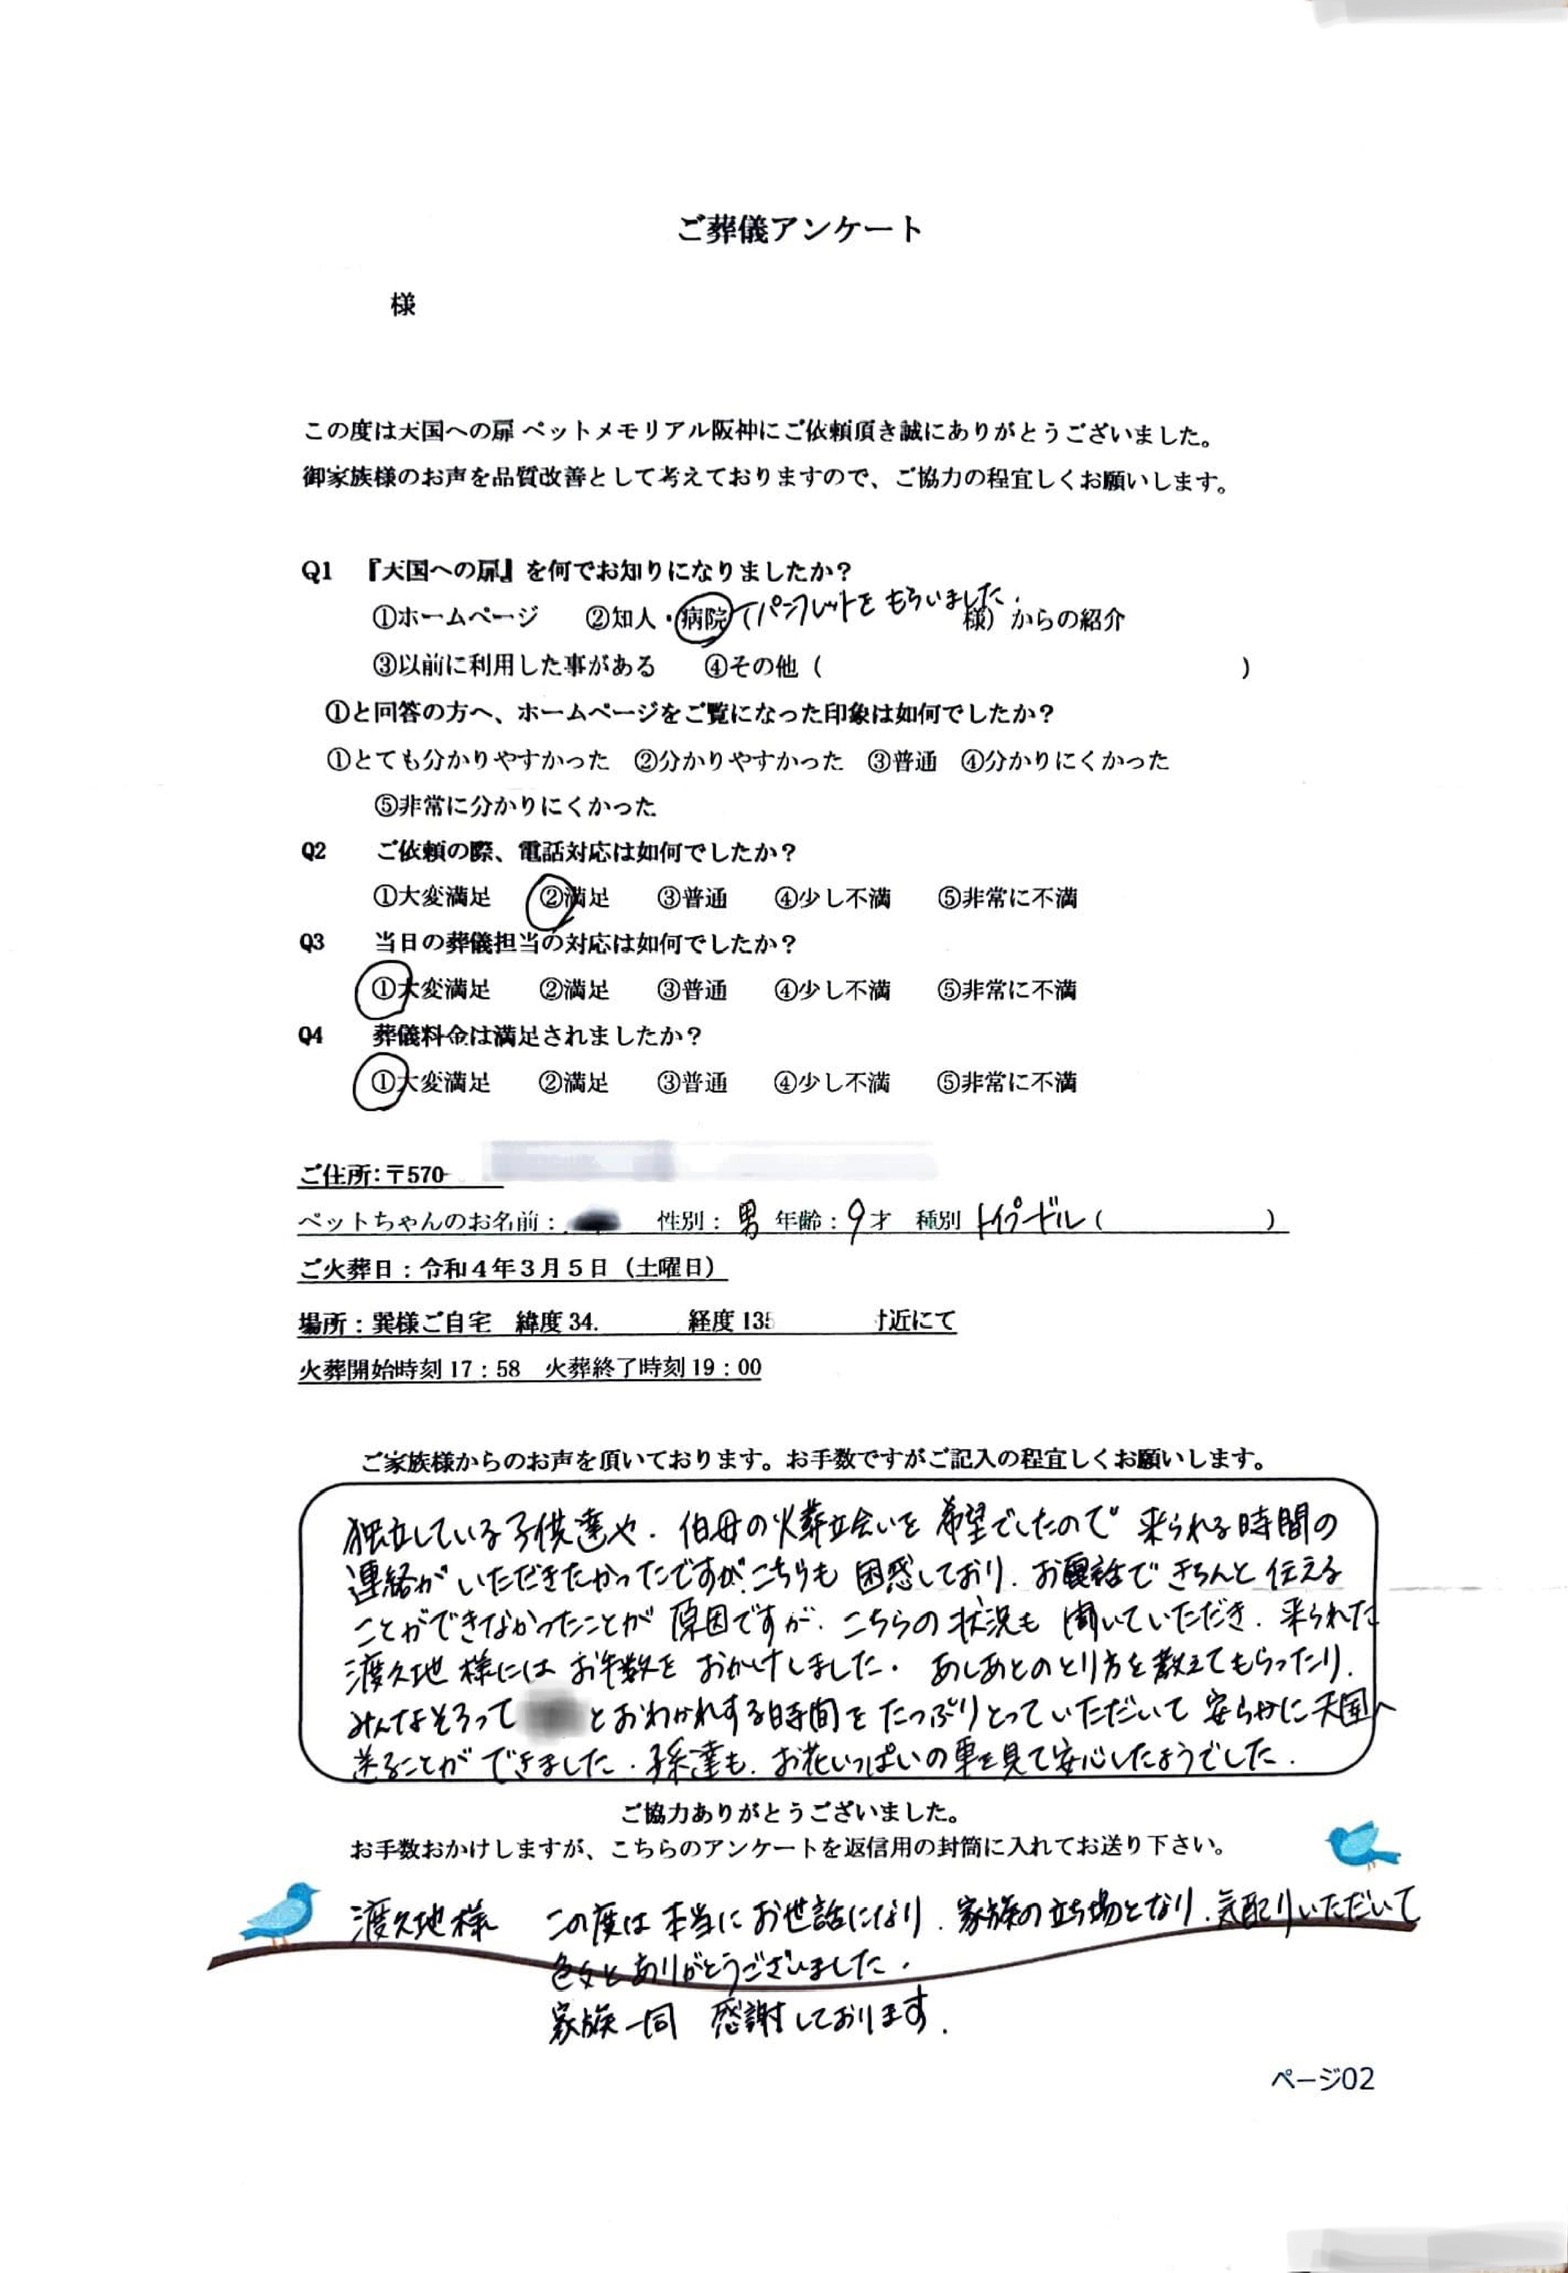 ご葬儀アンケート
様
この度は天国への扉 ペットメモリアル阪神にご依頼頂き誠にありがとうございました。
御家族様のお声を品質改善として考えておりますので、ご協力の程宜しくお願いします。
Q1 『天国への扉』を何でお知りになりましたか？
①ホームページ ②知人・病院（パンフレットをもらいました. 様）からの紹介
③以前に利用した事がある ④その他（ ）
①と回答の方へ、ホームページをご覧になった印象は如何でしたか？
①とても分かりやすかった ②分かりやすかった ③普通 ④分かりにくかった
⑤非常に分かりにくかった
Q2 ご依頼の際、電話対応は如何でしたか？
①大変満足 ②満足 ③普通 ④少し不満 ⑤非常に不満
Q3 当日の葬儀担当の対応は如何でしたか？
①大変満足 ②満足 ③普通 ④少し不満 ⑤非常に不満
Q4 葬儀料金は満足されましたか？
①大変満足 ②満足 ③普通 ④少し不満 ⑤非常に不満
ご住所：〒570-
ペットちゃんのお名前： 性別：男 年齢：9才 種別 トイプードル（ ）
ご火葬日：令和４年３月５日（土曜日）
場所：巽様ご自宅 緯度 34. 経度 135 付近にて
火葬開始時刻 17：58 火葬終了時刻 19：00
ご家族様からのお声を頂いております。お手数ですがご記入の程宜しくお願いします。
独立している子供達や. 伯母の火葬立会いを 希望でしたので 来られる時間の
連絡が いただきたかったですが. こちらも 困惑しており. お電話で きちんと 伝える
ことができなかったことが 原因ですが. こちらの状況も 聞いていただき. 来られた
渡久地 様には お手数を おかけしました. あしあとのとり方を教えてもらったり.
みんなそろって とおわかれする時間を たっぷりとっていただいて 安らかに天国へ
送ることが できました. 孫達も. お花いっぱいの車を見て安心したようでした.
ご協力ありがとうございました。
お手数おかけしますが、こちらのアンケートを返信用の封筒に入れてお送り下さい。
渡久地様 この度は 本当に お世話になり. 家族の立ち場となり. 気配りいただいて
色々と ありがとうございました.
家族一同 感謝しております.
ページ02